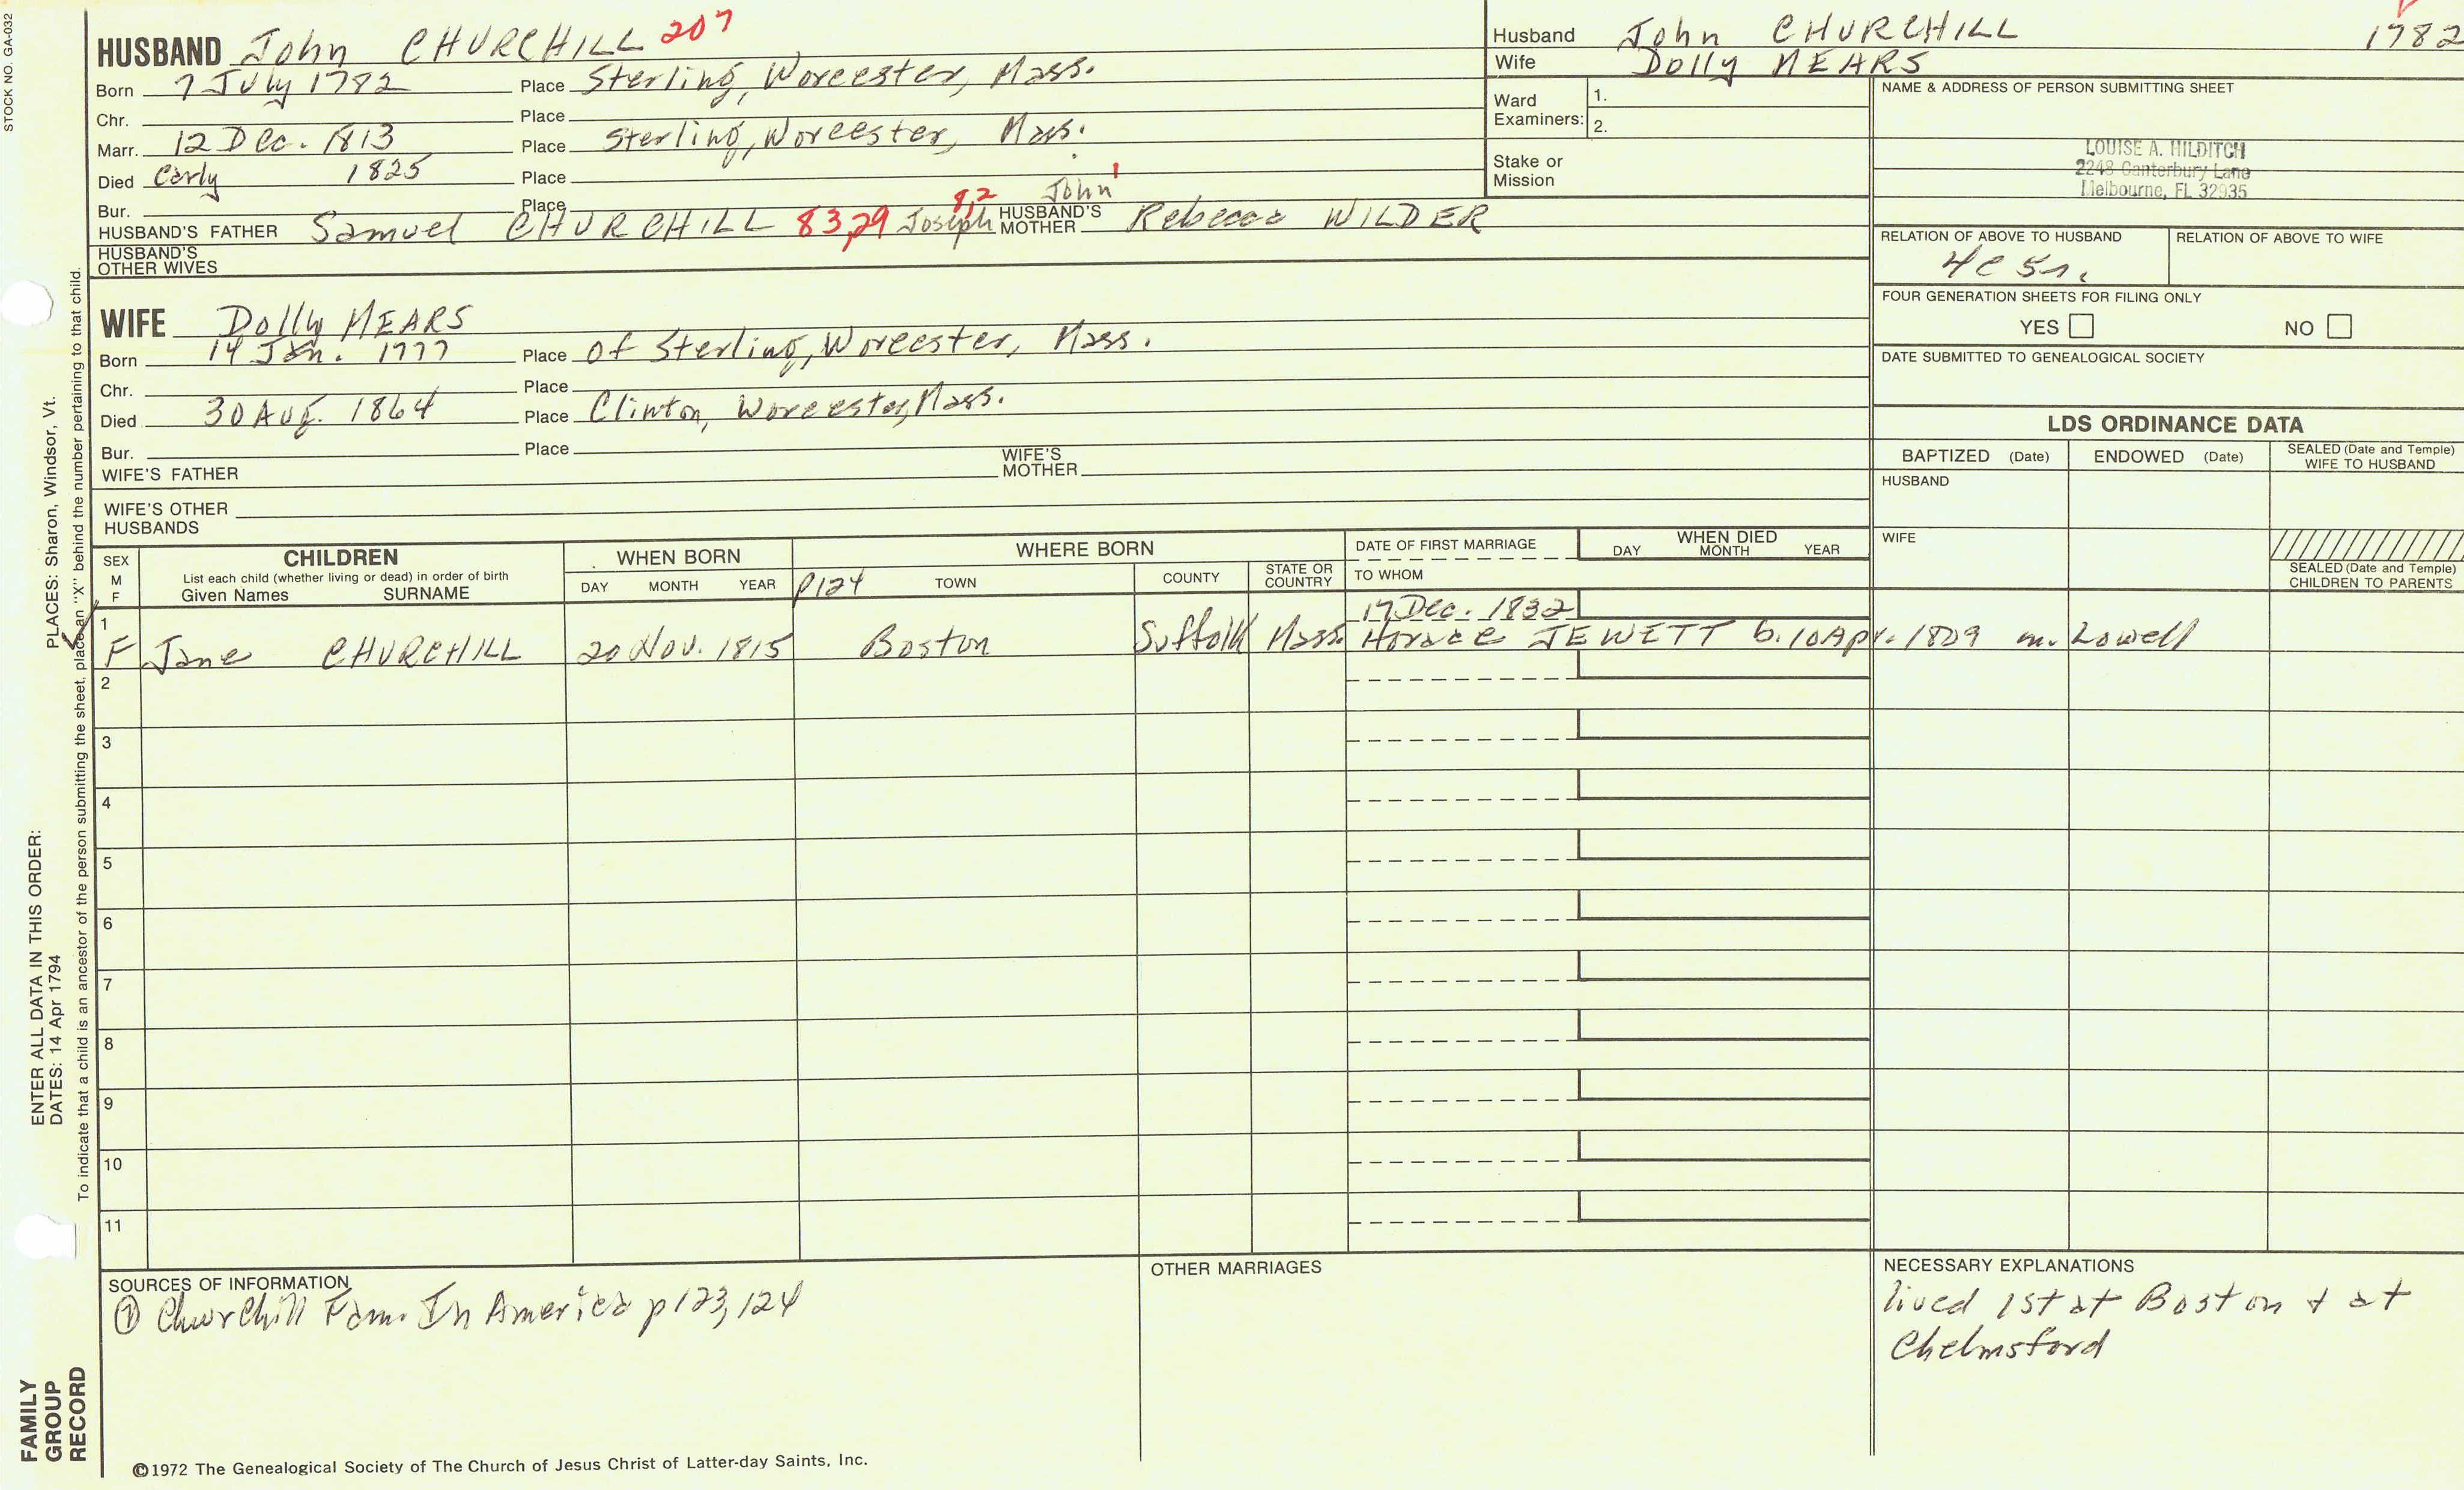 STOCK NO. GA-032
HUSBAND John CHURCHILL 207
Born 7 July 1782 Place Sterling, Worcester, Mass.
Chr. Place
Marr. 12 Dec. 1813 Place Sterling, Worcester, Mass.
Died Early 1825 Place
Bur. Place
HUSBAND'S FATHER Samuel CHURCHILL 83,29 Joseph 8,2 John 1 HUSBAND'S MOTHER Rebecca WILDER
HUSBAND'S OTHER WIVES
WIFE Dolly MEARS
Born 14 Jan. 1777 Place of Sterling, Worcester, Mass.
Chr. Place
Died 30 Aug. 1864 Place Clinton, Worcester, Mass.
Bur. Place
WIFE'S FATHER WIFE'S MOTHER
WIFE'S OTHER HUSBANDS
Husband John CHURCHILL 1782
Wife Dolly MEARS
Ward Examiners: 1.
2.
Stake or Mission
NAME & ADDRESS OF PERSON SUBMITTING SHEET
LOUISE A. HILDITCH
2248 Canterbury Lane
Melbourne, FL 32935
RELATION OF ABOVE TO HUSBAND RELATION OF ABOVE TO WIFE
4c 5r.
FOUR GENERATION SHEETS FOR FILING ONLY
YES NO
DATE SUBMITTED TO GENEALOGICAL SOCIETY
LDS ORDINANCE DATA
BAPTIZED (Date) ENDOWED (Date) SEALED (Date and Temple) WIFE TO HUSBAND
HUSBAND
WIFE
SEALED (Date and Temple) CHILDREN TO PARENTS
SEX M F
CHILDREN
List each child (whether living or dead) in order of birth
Given Names SURNAME
WHEN BORN
DAY MONTH YEAR
WHERE BORN
P124 TOWN COUNTY STATE OR COUNTRY
DATE OF FIRST MARRIAGE
TO WHOM
WHEN DIED
DAY MONTH YEAR
1 17 Dec. 1832
F Jane CHURCHILL 20 Nov. 1815 Boston Suffolk Mass. Horace JEWETT b. 10 Apr. 1809 m. Lowell
2
3
4
5
6
7
8
9
10
11
SOURCES OF INFORMATION
① Churchill Fam. In America p123,124
OTHER MARRIAGES
NECESSARY EXPLANATIONS
lived 1st at Boston + at
Chelmsford
©1972 The Genealogical Society of The Church of Jesus Christ of Latter-day Saints, Inc.
FAMILY GROUP RECORD
ENTER ALL DATA IN THIS ORDER:
DATES: 14 Apr 1794
PLACES: Sharon, Windsor, Vt.
To indicate that a child is an ancestor of the person submitting the sheet, place an "X" behind the number pertaining to that child.